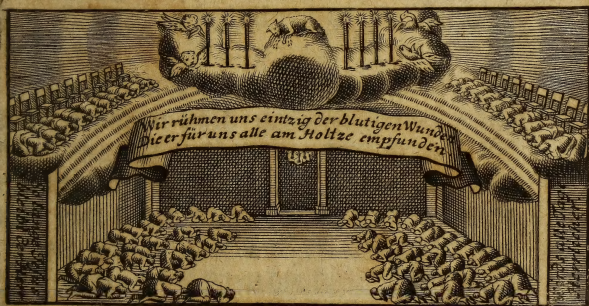 Wir rühmen uns eintzig der blutigen Wunde
Die er für uns alle am Holtze empfunden